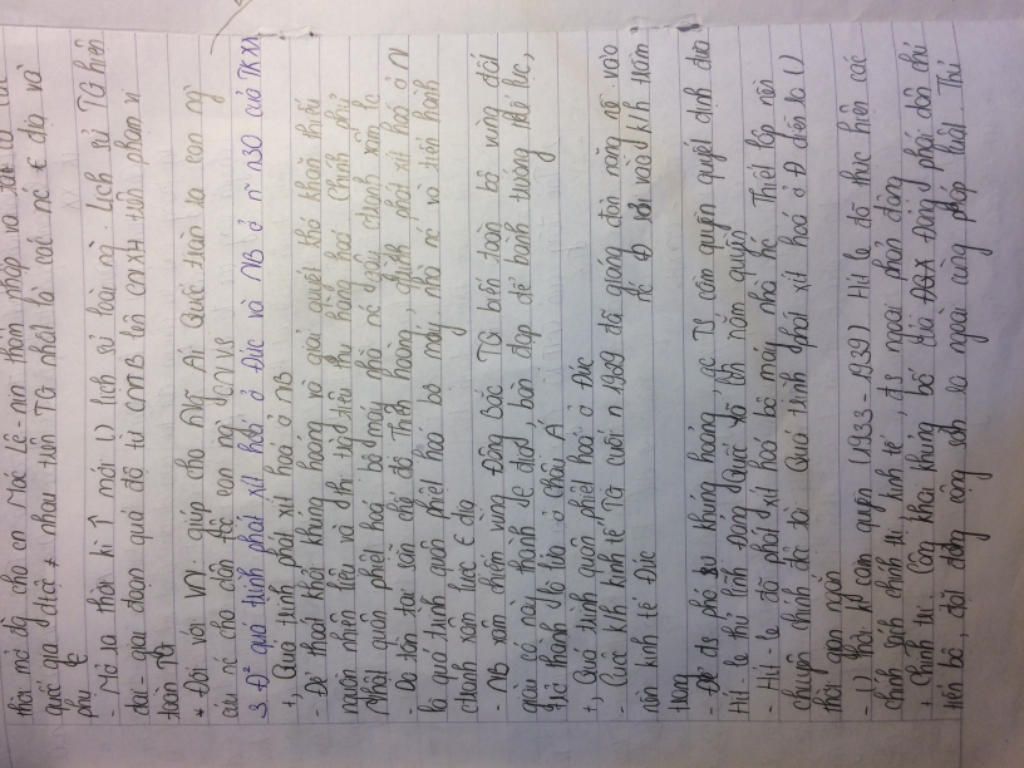 thời mở đg cho cn Mác Lê-nin thâm nhập và
quốc gia dtộc ≠ nhau trên TG nhất là các nc € địa và
phụ €
- Mở ra thời kì ↑ mới () lịch sử loài ng. Lịch sử TG hiện
đại - giai đoạn quá độ từ CNTB lên CNXH trên phạm vi
toàn TG
* Đối với VN: giúp cho Ng Ái Quốc tìm ra con ng
cứu nc cho dân tộc con ng CMVS
3 Đ² quá trình phát xít hoá ở Đức và NB ở n~ n30 của TK XX
+, Quá trình phát xít hoá ở NB
- Để thoát khỏi khủng hoảng và giải quyết khó khăn thiếu
nguyên nhiên liệu và thị trg tiêu thụ hàng hoá Chính phủ
Nhật quân phiệt hoá bộ máy nhà nc gây chiến tranh xâm lc
- Do tồn tại sẵn chế độ Thiên hoàng, qtrình phát xít hoá ở N
là quá trình quân phiệt hoá bộ máy nhà nc và tiến hành
chiến tranh xâm lược € địa
- NB xâm chiếm vùng Đông Bắc TQ biến toàn bộ vùng đất
giàu có này thành tc địa, bàn đạp để bành trướng thế lực,
trở thành lò lửa ở Châu Á
+, Quá trình quân phiệt hoá ở Đức
- Cuộc klh kinh tế TG cuối n 1929 đã giáng đòn nặng nề vào
nền kinh tế Đức
- Để đc phó sự khủng hoảng, gc TS cầm quyền quyết định đưa
Hit le thủ lĩnh Đảng Quốc xã lên nắm quyền
- Hit-le đã phát xít hoá bộ máy nhà nc Thiết lập nền
chuyên chính độc tài Quá trình phát xít hoá ở Đ diễn ra ()
thời gian ngắn
- () thời kỳ cầm quyền (1933-1939) Hit le đã thực hiện các
chính sách chính trị, kinh tế, đ/s ngoại phản động
+ Chính trị Công khai khủng bố Đảng phái dân chủ
tiến bộ, đặt đảng cộng sản ra ngoài vòng pháp luật Thủ